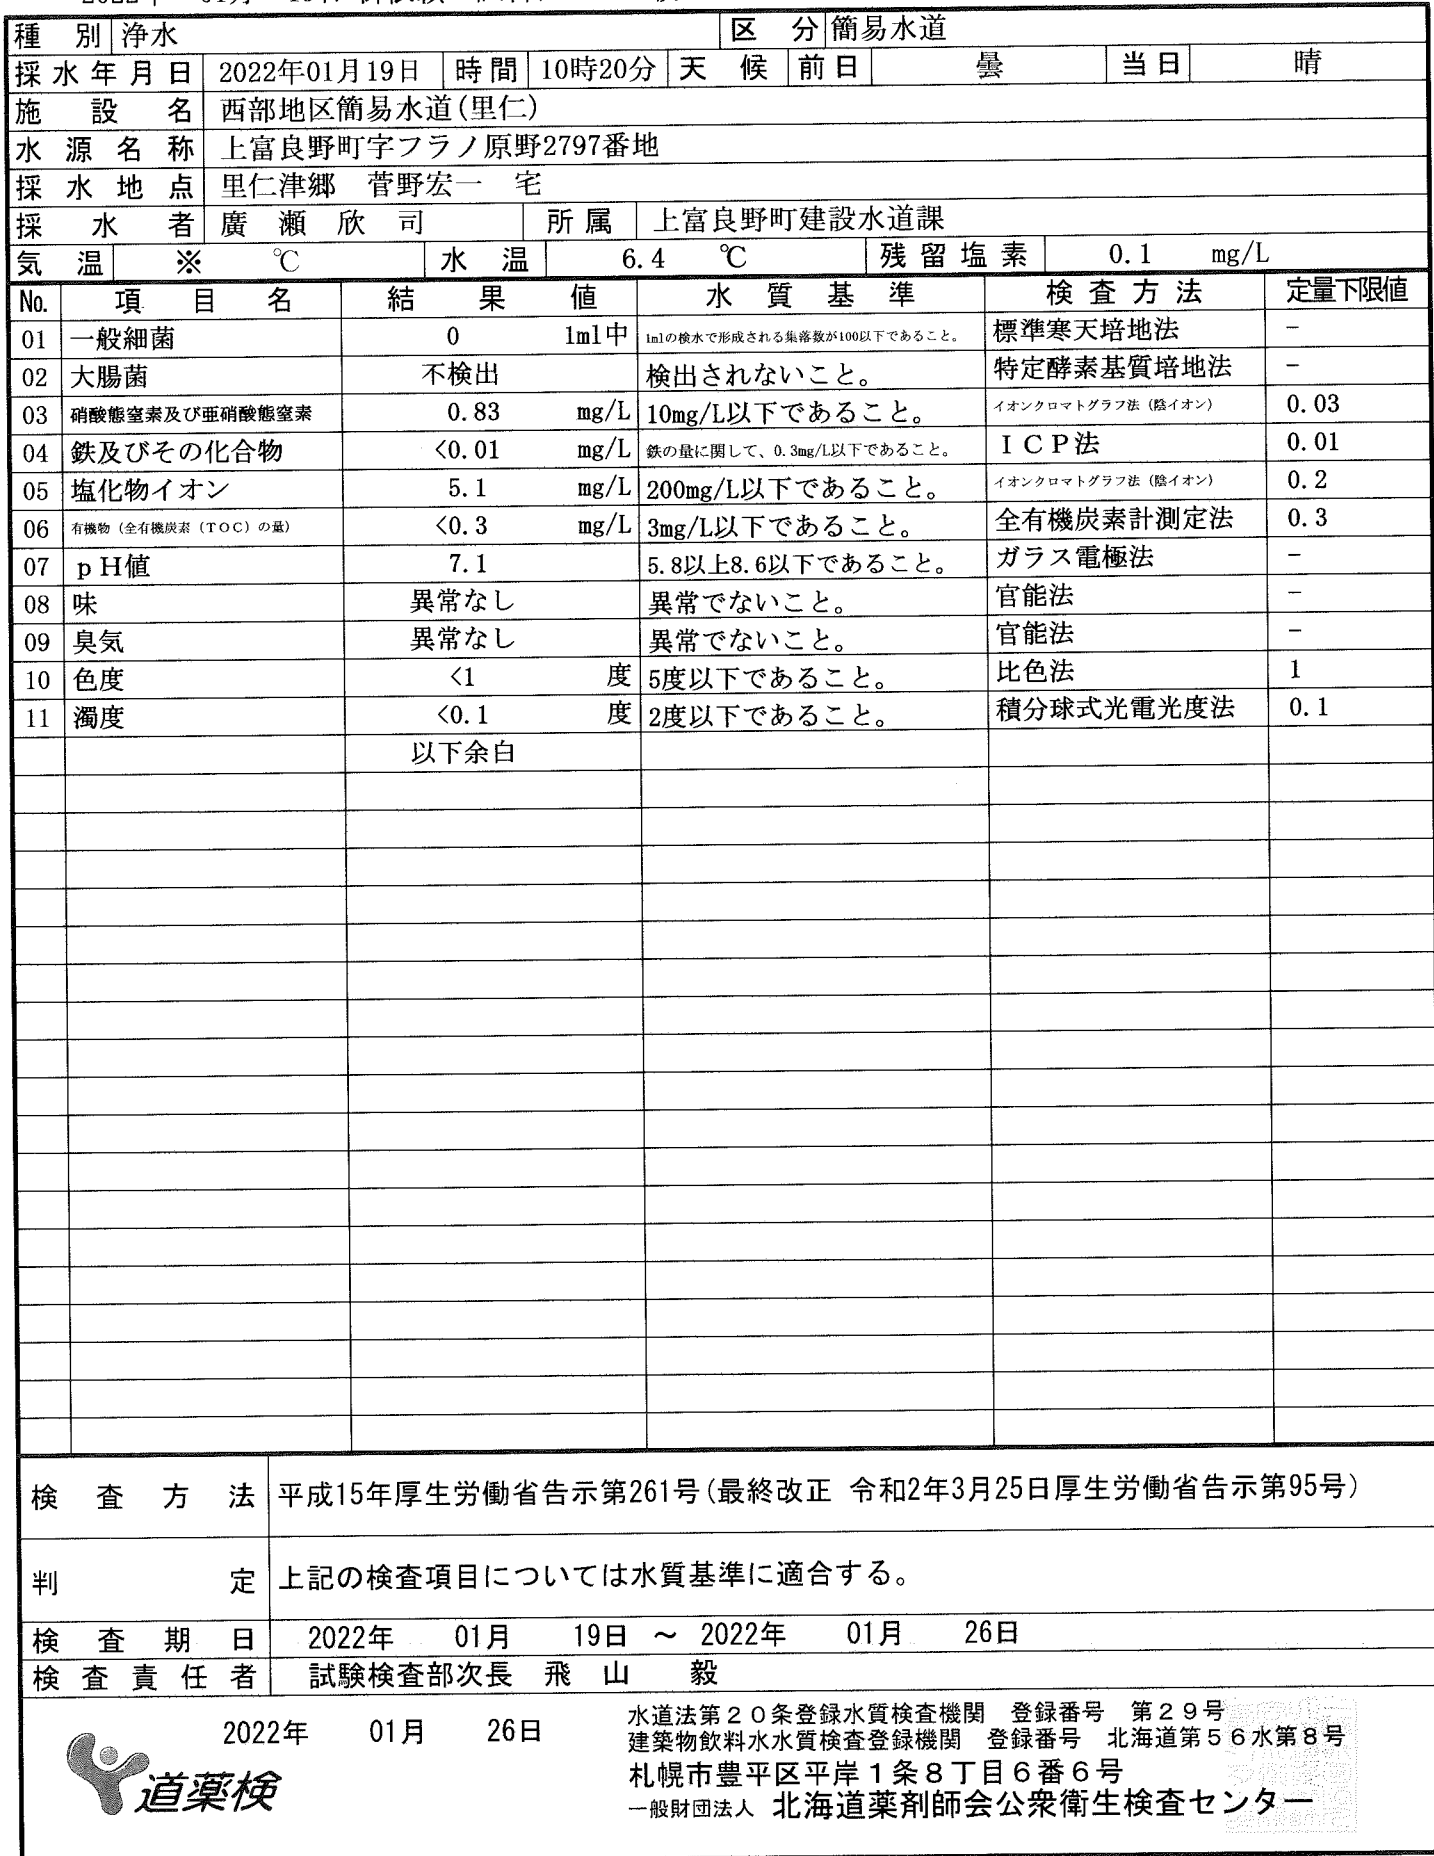 種 別 浄水 区 分 簡易水道
採水年月日 2022年01月19日 時間 10時20分 天 候 前日 曇 当日 晴
施 設 名 西部地区簡易水道(里仁)
水 源 名 称 上富良野町字フラノ原野2797番地
採 水 地 点 里仁津郷 菅野宏一 宅
採 水 者 廣 瀬 欣 司 所属 上富良野町建設水道課
気 温 ※ ℃ 水 温 6.4 ℃ 残留塩素 0.1 mg/L
No. 項 目 名 結 果 値 水 質 基 準 検査方法 定量下限値
01 一般細菌 0 1ml中 1mlの検水で形成される集落数が100以下であること。 標準寒天培地法 −
02 大腸菌 不検出 検出されないこと。 特定酵素基質培地法 −
03 硝酸態窒素及び亜硝酸態窒素 0.83 mg/L 10mg/L以下であること。 イオンクロマトグラフ法（陰イオン） 0.03
04 鉄及びその化合物 <0.01 mg/L 鉄の量に関して、0.3mg/L以下であること。 ＩＣＰ法 0.01
05 塩化物イオン 5.1 mg/L 200mg/L以下であること。 イオンクロマトグラフ法（陰イオン） 0.2
06 有機物（全有機炭素（ＴＯＣ）の量） <0.3 mg/L 3mg/L以下であること。 全有機炭素計測定法 0.3
07 ｐＨ値 7.1 5.8以上8.6以下であること。 ガラス電極法 −
08 味 異常なし 異常でないこと。 官能法 −
09 臭気 異常なし 異常でないこと。 官能法 −
10 色度 <1 度 5度以下であること。 比色法 1
11 濁度 <0.1 度 2度以下であること。 積分球式光電光度法 0.1
以下余白
検 査 方 法 平成15年厚生労働省告示第261号(最終改正 令和2年3月25日厚生労働省告示第95号)
判 定 上記の検査項目については水質基準に適合する。
検 査 期 日 2022年 01月 19日 ～ 2022年 01月 26日
検 査 責 任 者 試験検査部次長 飛 山 毅
2022年 01月 26日
水道法第２０条登録水質検査機関 登録番号 第２９号
建築物飲料水水質検査登録機関 登録番号 北海道第５６水第８号
札幌市豊平区平岸１条８丁目６番６号
一般財団法人 北海道薬剤師会公衆衛生検査センター
道薬検